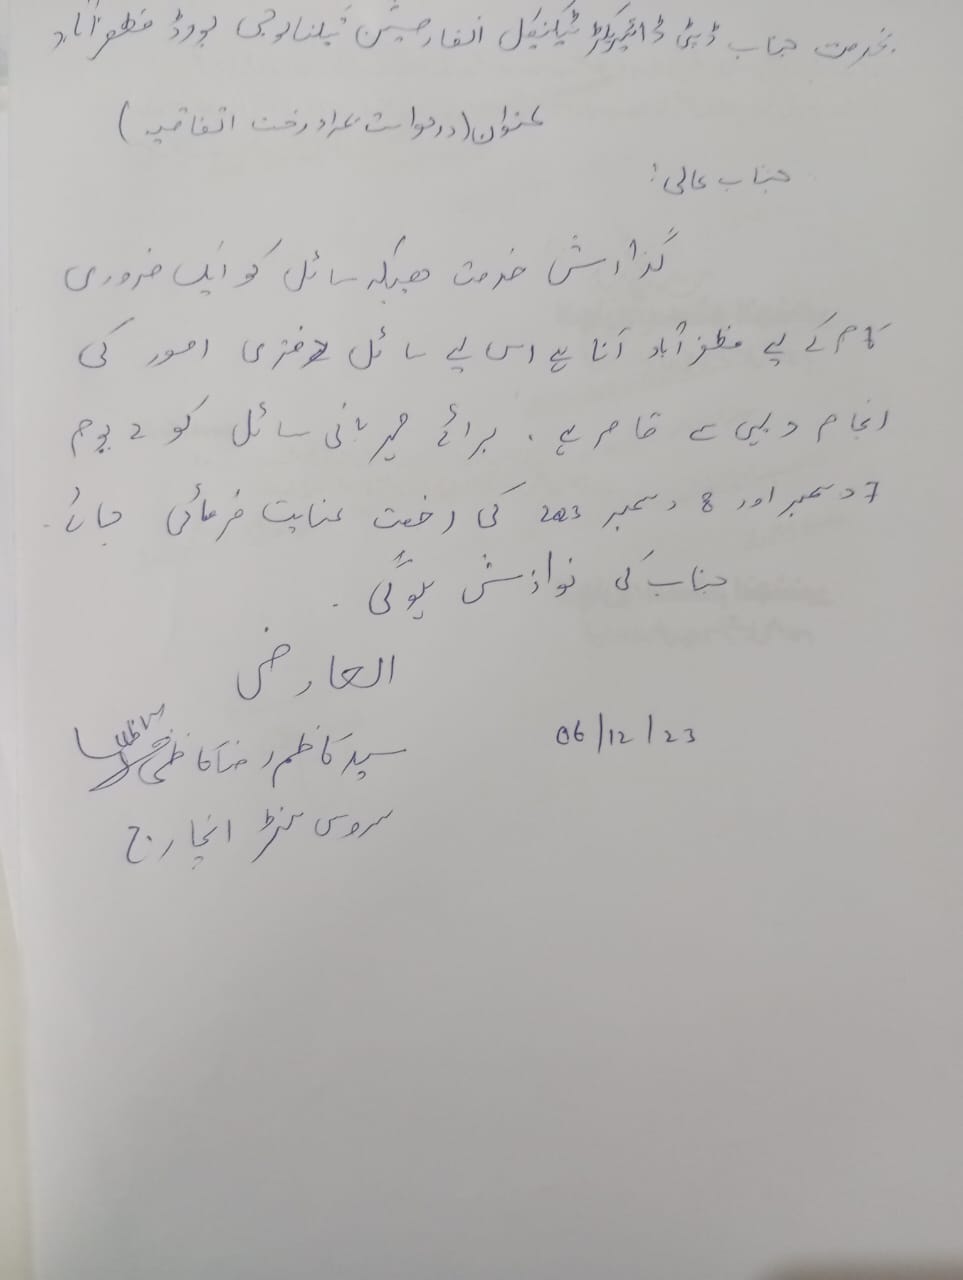 بخدمت جناب ڈپٹی ڈائریکٹر ٹیکنیکل انفارمیشن ٹیکنالوجی بورڈ مظفرآباد
عنوان (درخواست بمراد رخصت اتفاقیہ)
جناب عالی:
گذارش خدمت ھیکہ سائل کو ایک ضروری
کام کے لیے مظفرآباد آنا ہے اس لیے سائل دفتری امور کی
انجام دہی سے قاصر ہے۔ برائے مہربانی سائل کو 2 یوم
7 دسمبر اور 8 دسمبر 2023 کی رخصت عنایت فرمائی جائے۔
جناب کی نوازش ہوگی۔
العارض
سید کاظم رضا کاظمی
06/12/23
سروس سنٹر انچارج